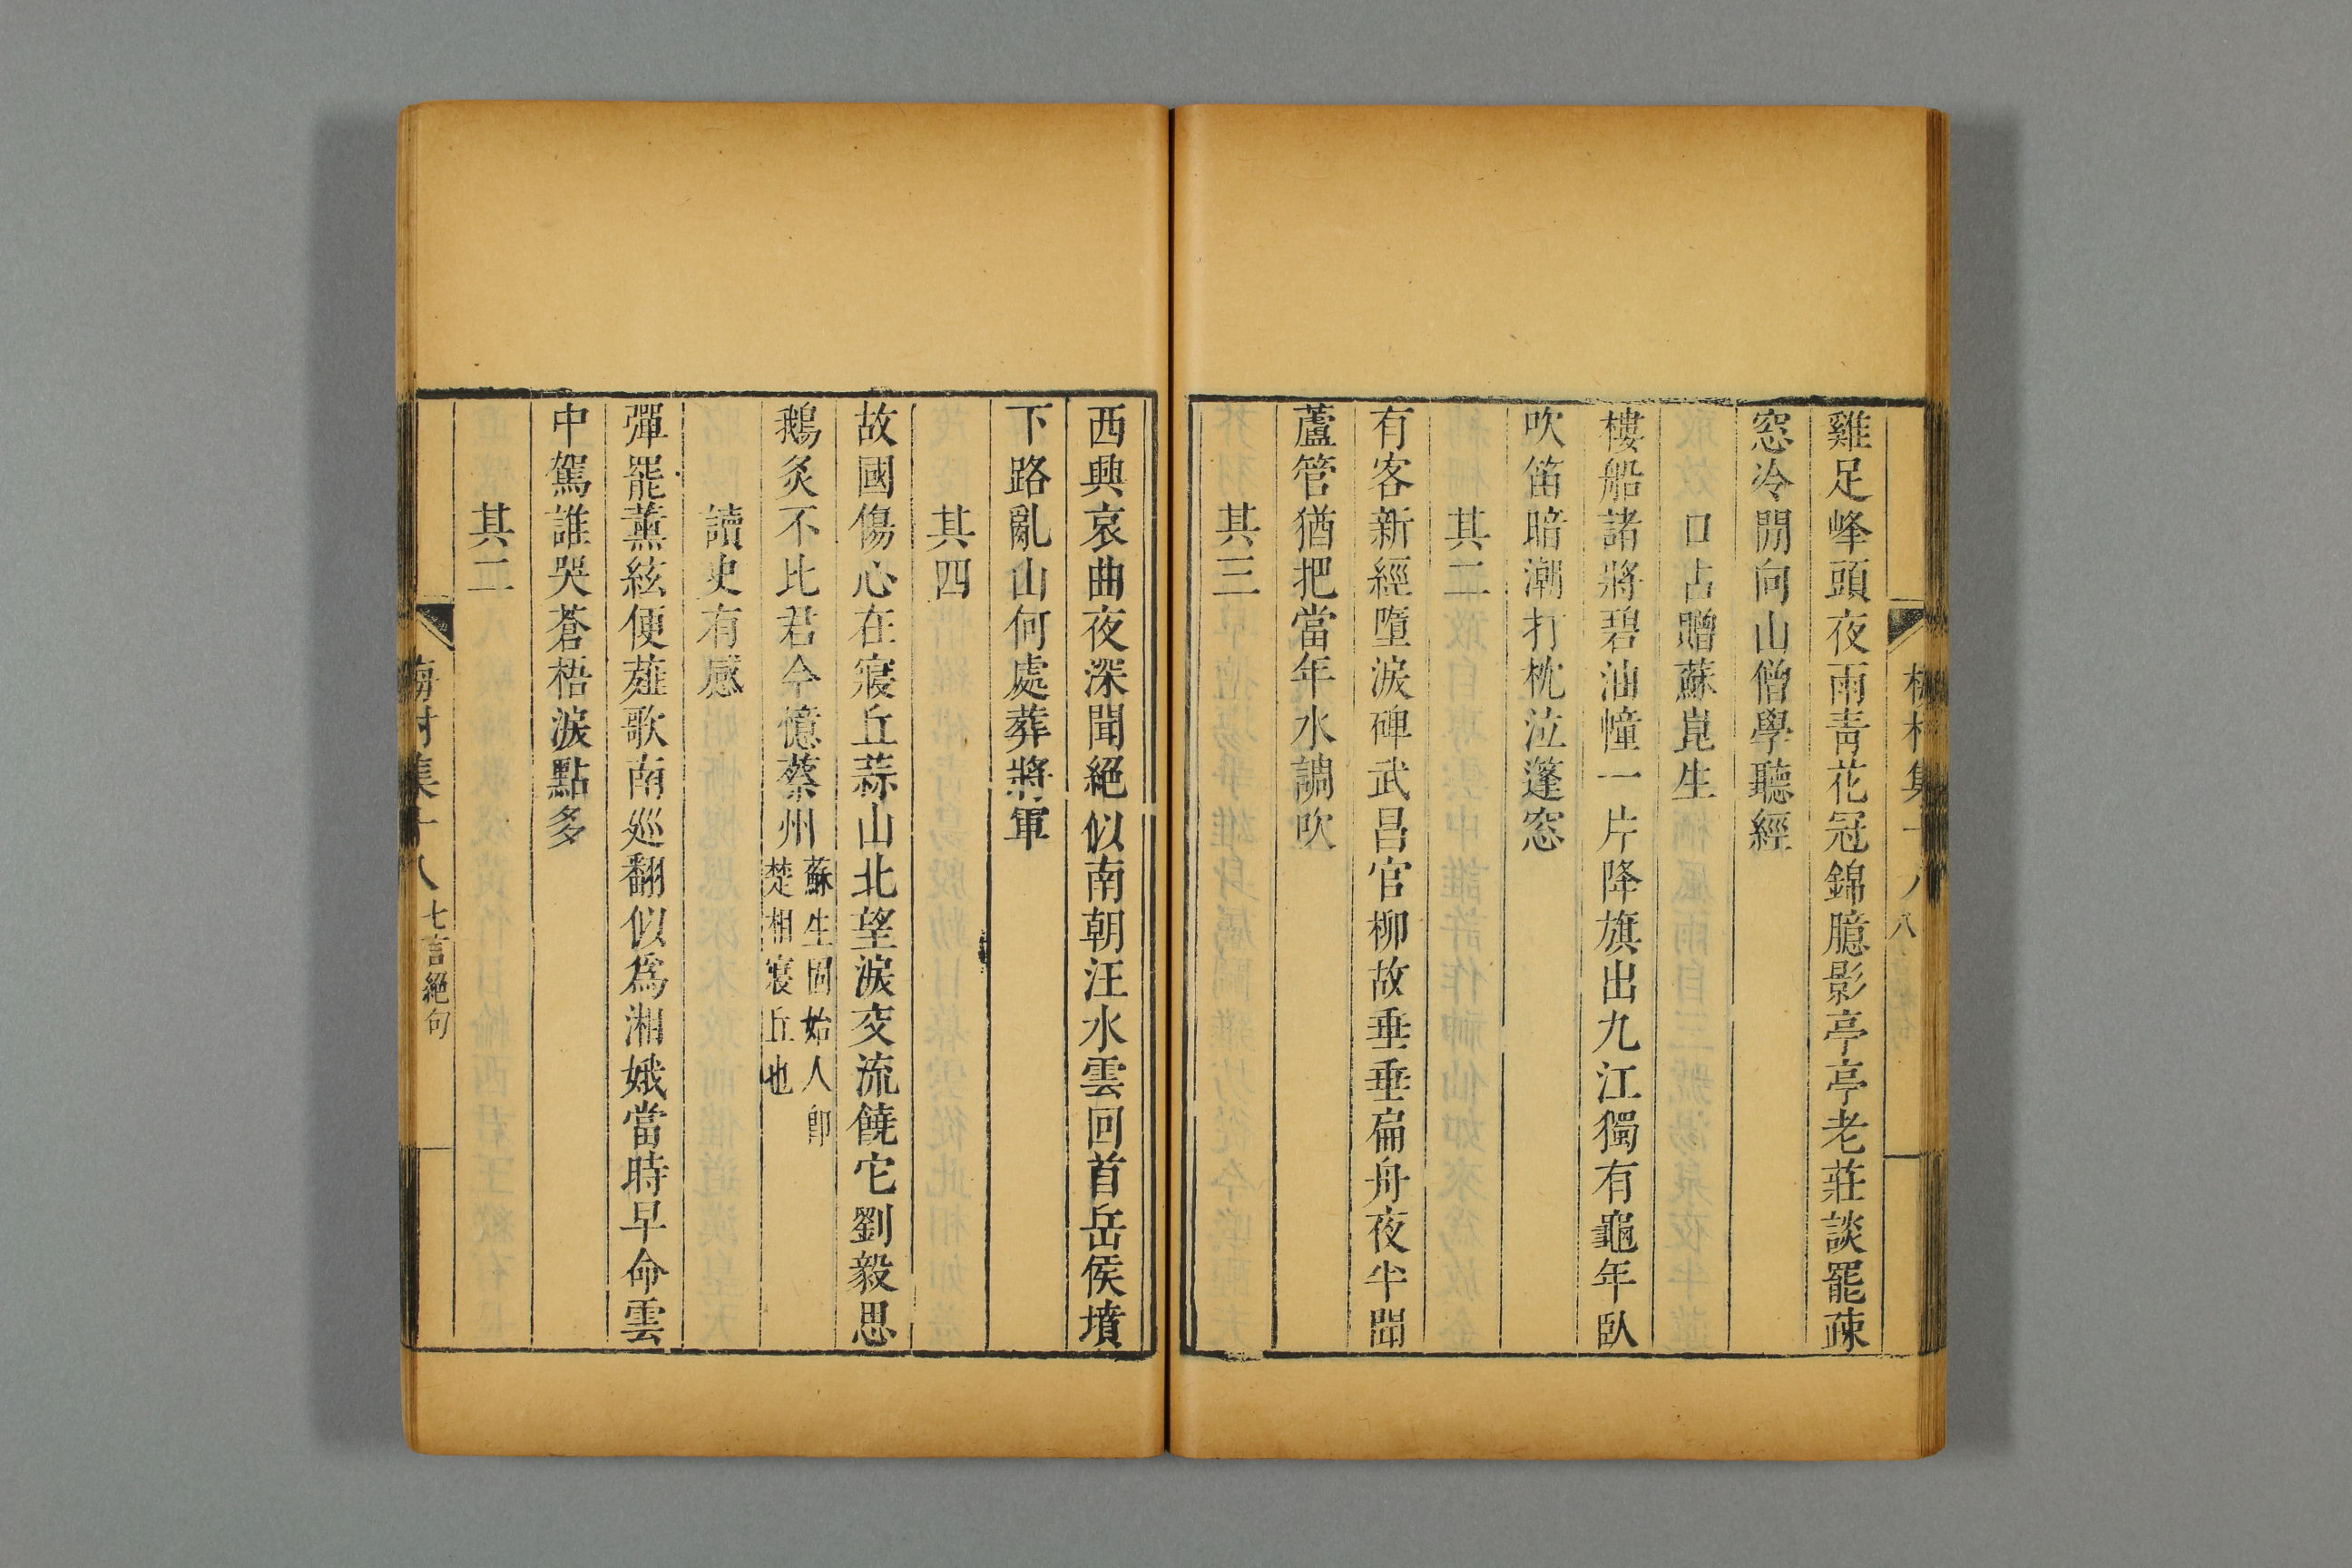 雞足峰頭夜雨靑花冠錦臆影亭亭老莊談罷疎
窓冷閒向山僧學聽經
口占贈蘇崑生
樓船諸將碧油幢一片降旗出九江獨有龜年臥
吹笛暗潮打枕泣蓬窓
其二
有客新經墮淚碑武昌官柳故垂垂扁舟夜半聞
蘆管猶把當年水調吹
其三
西興哀曲夜深聞絕似南朝汪水雲回首岳侯墳
下路亂山何處葬將軍
其四
故國傷心在寢丘蒜山北望淚交流饒它劉毅思
鵝炙不比君今憶蔡州
蘇生固始人卽
楚相寢丘也
讀史有感
彈罷薰絃便薤歌南廵翻似爲湘娥當時早命雲
中駕誰哭蒼梧淚點多
其二
梅村集十八
七言絕句